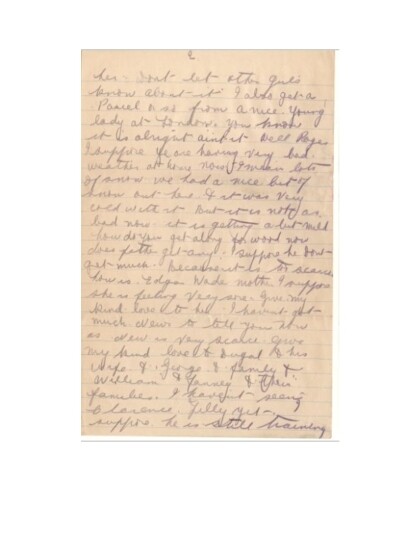 2
her - Dont let other girls
know about it I also get a
Parcel or so from a nice. Young
lady at London. You know
it is alright aint it Well
I suppose ye are having very bad.
weather at home now I mean lots
of snow we had a nice bit of
snow out here. & it was very
cold with it But it is not as
bad now. it is getting a bit mild
how do you get along for wood now
does father get any. I suppose he dont
get much. Because it is so scarce
how is. Edgar Wade mother I suppose
she is feeling very sore. Give my
kind love to her I havent got
much news to tell you now
as news is very scarce Give
my kind love to Dugal & his
Wife & George & family &
William & & their
families. I havent seeing
Clarence. Tilly yet -
suppose he is still training